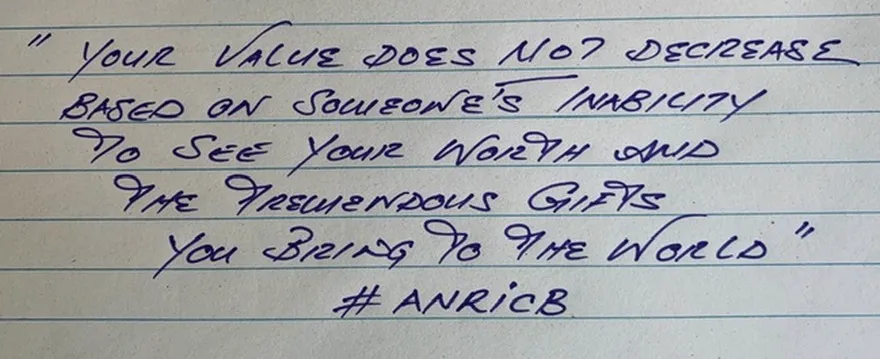 " YOUR VALUE DOES NOT DECREASE
BASED ON SOMEONE'S INABILITY
TO SEE YOUR WORTH AND
THE TREMENDOUS GIFTS
YOU BRING TO THE WORLD "
# ANRiCB